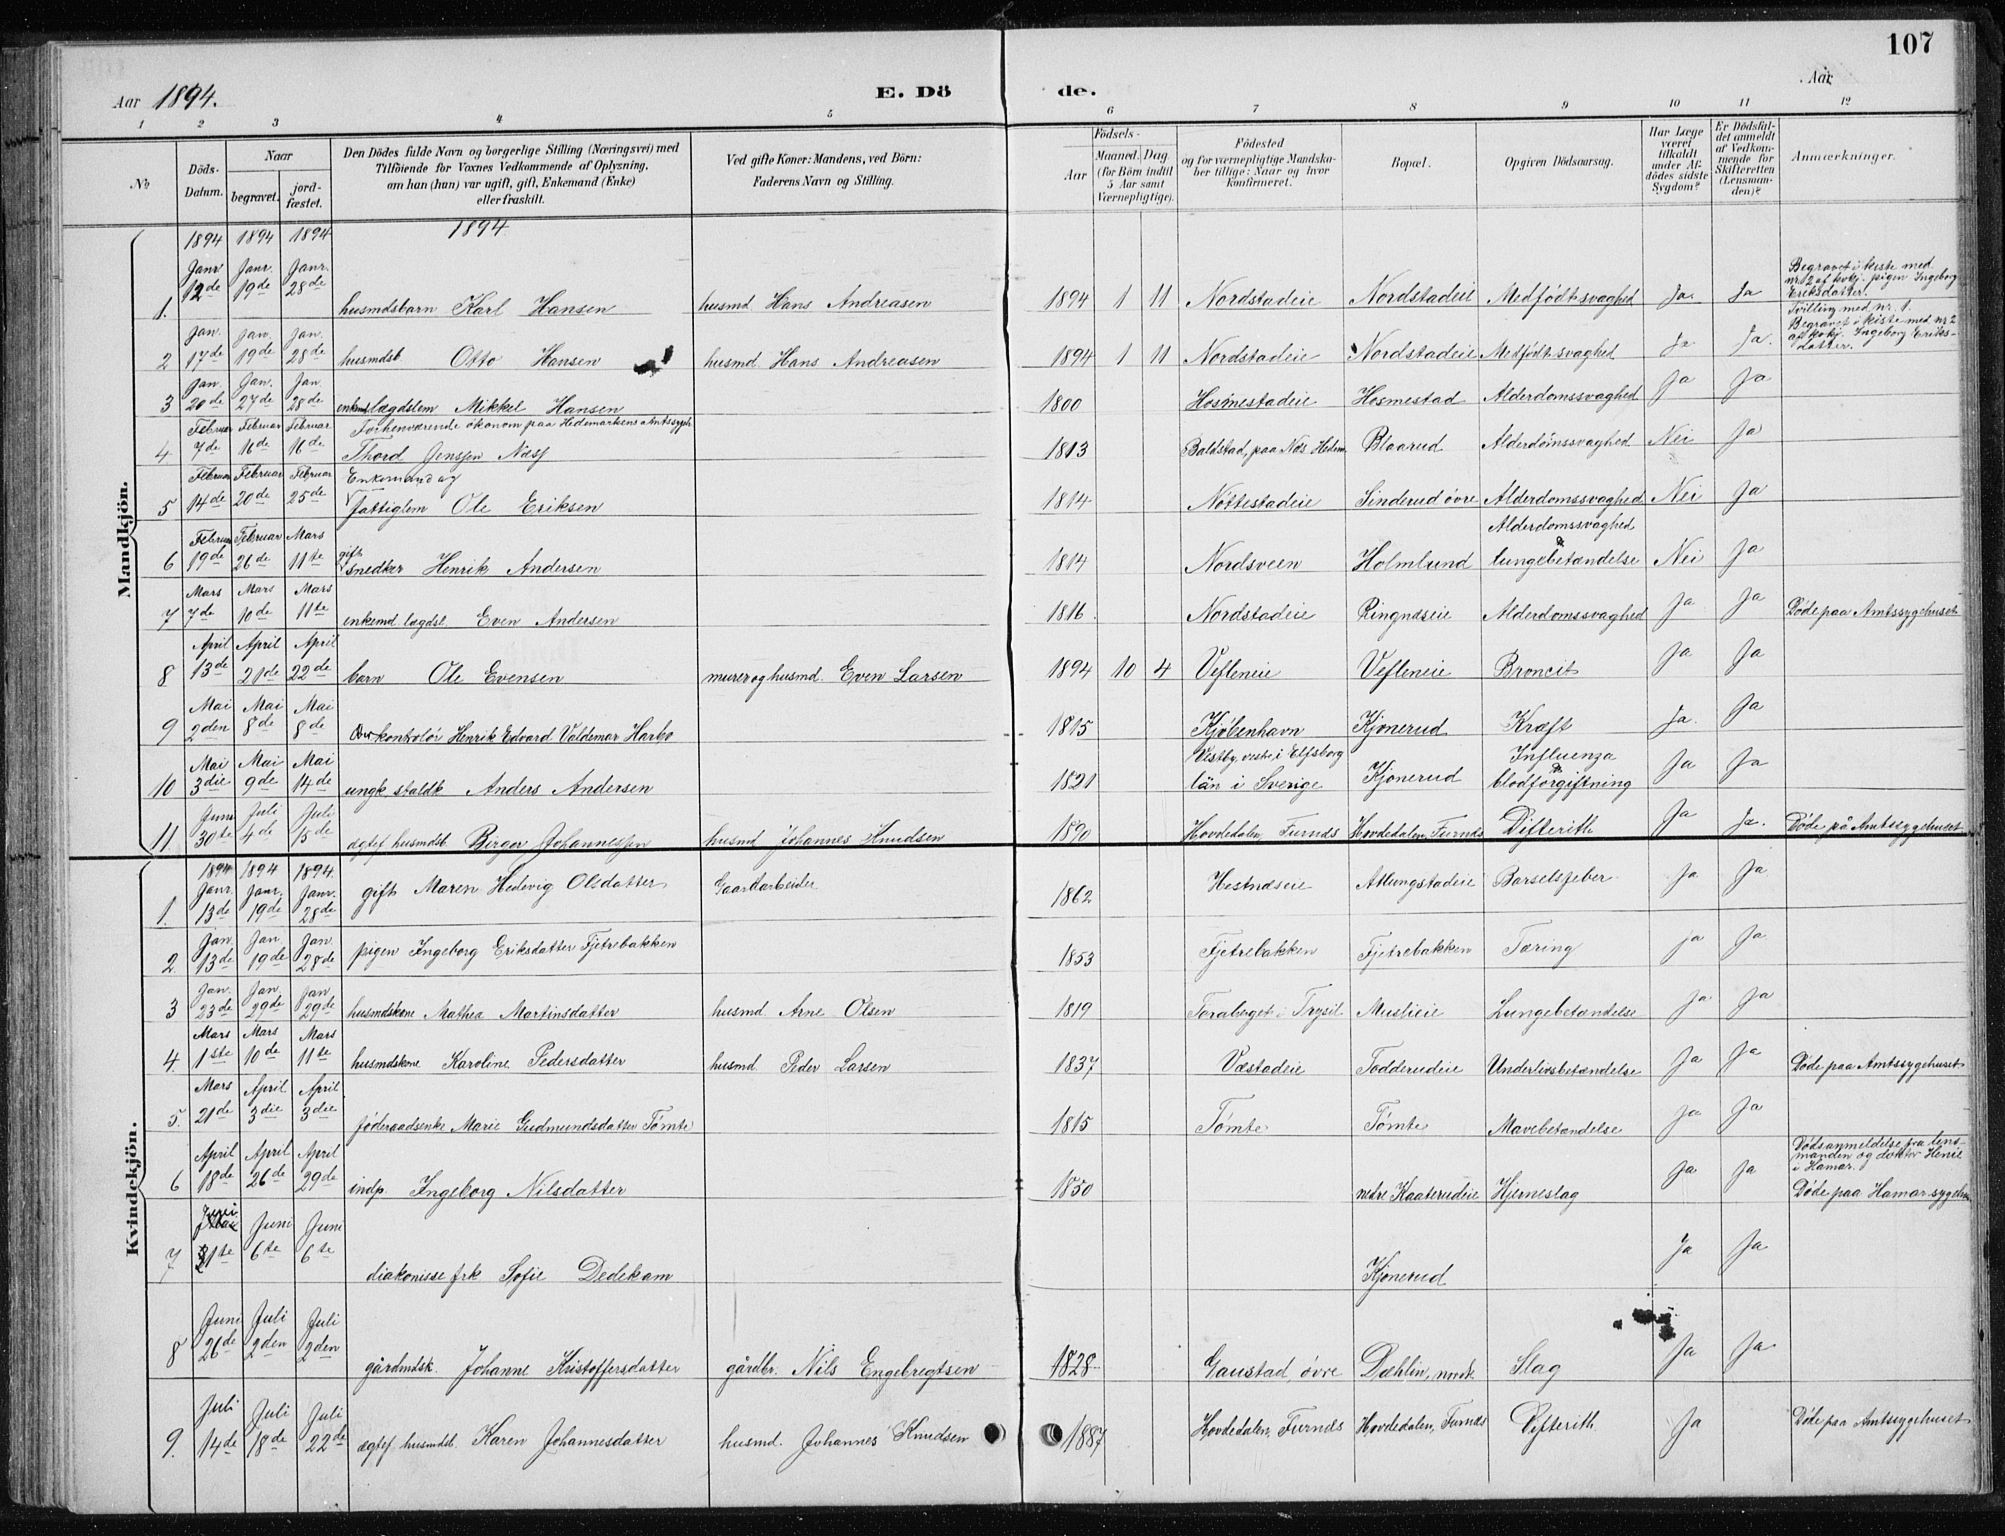 107
Aar 1894.
E. Dö
de.
Aar
1 2 3 4 5 6 7 8 9 10 11 12
No
Döds-Datum.
Naar
begravet.
jord-fæstet.
Den Dödes fulde Navn og borgerlige Stilling (Næringsvei) med
Tilföiende for Voxnes Vedkommende af Oplysning,
om han (hun) var ugift, gift, Enkemand (Enke)
eller fraskilt.
Ved gifte Koner: Mandens, ved Börn:
Faderens Navn og Stilling.
Födsels-
Aar
Maaned. Dag
(for Börn indtil
5 Aar samt
Værnepligtige).
Födested
og for værnepligtige Mandska-
ber tillige: Naar og hvor
konfirmeret.
Bopæl.
Opgiven Dödsaarsag.
Har Læge
været
tilkaldt
under Af-
dödes sidste
Sygdom?
Er Dödsfal-
det anmeldt
af Vedkom-
mende for
Skifteretten
(Lensman-
den)?
Anmærkninger.
Mandkjön.
1894 1894 1894 1894
1. Janr 12de Janr. 19de Janr. 28de husmdsbarn Karl Hansen husmd Hans Andreasen 1894 1 11 Nordstadeie Nordstadeie Medfödt svaghed Ja Ja Begravet i kiste med
nr. 2 af kvkj. pigen Ingeborg
Eriksdatter.
2 Jan. 17de Jan. 19de Jan. 28de husmdsb. Otto Hansen husmd Hans Andreasen 1894 1 11 Nordstadeie Nordstadeie Medfödt svaghed Ja Ja. Tvilling med nr. 1.
Begravet i kiste med nr 2
af kvkj. Ingeborg Eriks-
datter.
3 Jan. 20de Jan. 27de Jan. 28de enkemd lægdslem Mikkel Hansen 1800 Hosmestadeie Hosmestad Alderdomssvaghed Ja Ja
4 Februar 7de Februar 16de Februar 16de Forhenværende ökonom paa Hedemarkens Amtssygh
Thord Jenssen Næss 1813 Baldstad, paa Næs Hedem. Blaarud Alderdömssvaghed Nei Ja
5 Februar 14de Februar 20de Februar 25de Enkemand og
fattiglem Ole Eriksen 1814 Nöttestadeie Sinderud övre Alderdomssvaghed Nei Ja
6 Februar 19de Februar 26de Mars 11te gift
snedker Henrik Andersen 1814 Nordsveen Holmlund Alderdomssvaghed
&
lungebetændelse Nei Ja
7 Mars 7de Mars 10de Mars 11te enkemd lægdsl. Even Andersen 1816 Nordstadeie Ringnæseie Alderdomssvaghed Ja Ja Döde paa Amtssygehuset
8 April 13de April 21de April 22de barn Ole Evensen murer og husmd. Even Larsen 1894 10 4 Vefleneie Vefleneie Broncit Ja Ja
9 Mai 2den Mai 8de Mai 8de Overkontrolör Henrik Edvard Valdemar Harbo 1815 Kjöbenhavn Kjonerud Kræft Ja. Ja
10 Mai 3die Mai 9de Mai 14de ungk. staldk. Anders Andersen 1821 Vestby, i Elfsborg
län i Sverige Kjonerud Influenza
&
blodforgiftning Ja Ja
11. Juni 30te Juli 4de Juli 15de ægtef husmdsb. Birger Johannessen husmd Johannes Knudsen 1890 Hovdedalen, Furnæs Hovdedalen, Furnæs Difterith Ja Ja. Döde på Amtssygehuset
Kvindekjön.
1894 1894 1894
1. Janr. 13de Janr. 19de Janr. 28de gift Maren Hedevig Olsdatter Gaardarbeider 1862 Hestnæseie Atlungstadeie Barselsfeber Ja Ja
2 Jan. 13de Jan. 19de Jan. 28de pigen Ingeborg Eriksdatter Fjetrebakken 1853 Fjetrebakken Fjetrebakken Tæring Ja Ja
3 Jan. 23de Jan. 29de Jan. 29de husmdskone Mathea Martinsdatter husmd Arne Olsen 1819 Foraberget i Trysil Muslieie Lungebetændelse Ja Ja
4 Mars 1ste Mars 10de Mars 11te husmdskone Karoline Pedersdatter husmd. Peder Larsen 1837 Væstadeie Todderudeie Underlivsbetændelse Ja Ja Döde paa Amtssygehuset
5. Mars 21de April 3die April 3die föderaadsenke Marie Gudmundsdatter Tömte 1815 Tömte Tömte Mavebetændelse Ja Ja
6 April 18de April 26de April 29de indp. Ingeborg Nilsdatter 1850 nedre Kaaterudeie Hjerneslag Ja Ja Dödsanmeldelse fra lens-
manden og doktor Henie
i Hamar.
Döde paa Hamar sygehus
7 Juni 1te Juni 6te Juni 6te diakonisse frk Sofie Dedekam Kjonerud Ja Ja
8 Juni 26de Juli 2den Juli 2den gårdmdsk. Johanne Kristoffersdatter gårdbr. Nils Engebregtsen 1828 Gaustad övre Dæhlin, nordr. Slag Ja Ja
9. Juli 14de Juli 18de Juli 22de ægtef husmdsb. Karen Johannesdatter husmd. Johannes Knudsen 1887 Hovdedalen, Furnæs Hovdedalen, Furnæs Difterith Ja Döde paa Amtssygehuset